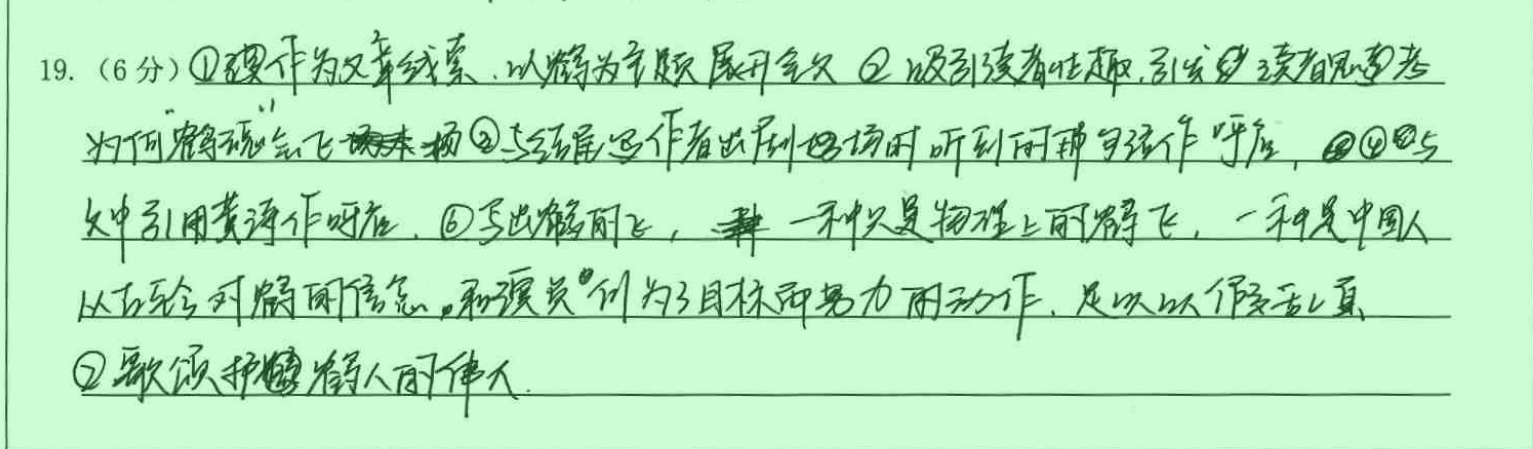 19.（6分）①作为文章线索、以鹤为主题展开全文 ②吸引读者性趣，引发读者思考
为何“鹤魂”会飞 ③与结尾写作者出剧场时听到的那句话作呼应，④与
文中引用黄诗作呼应．⑥写出鹤的飞，一种只是物理上的鹤飞，一种是中国人
从古至今对鹤的信念，和演员们为了目标而努力的动作，足以以假乱真
⑦歌颂护鹤人的伟大．